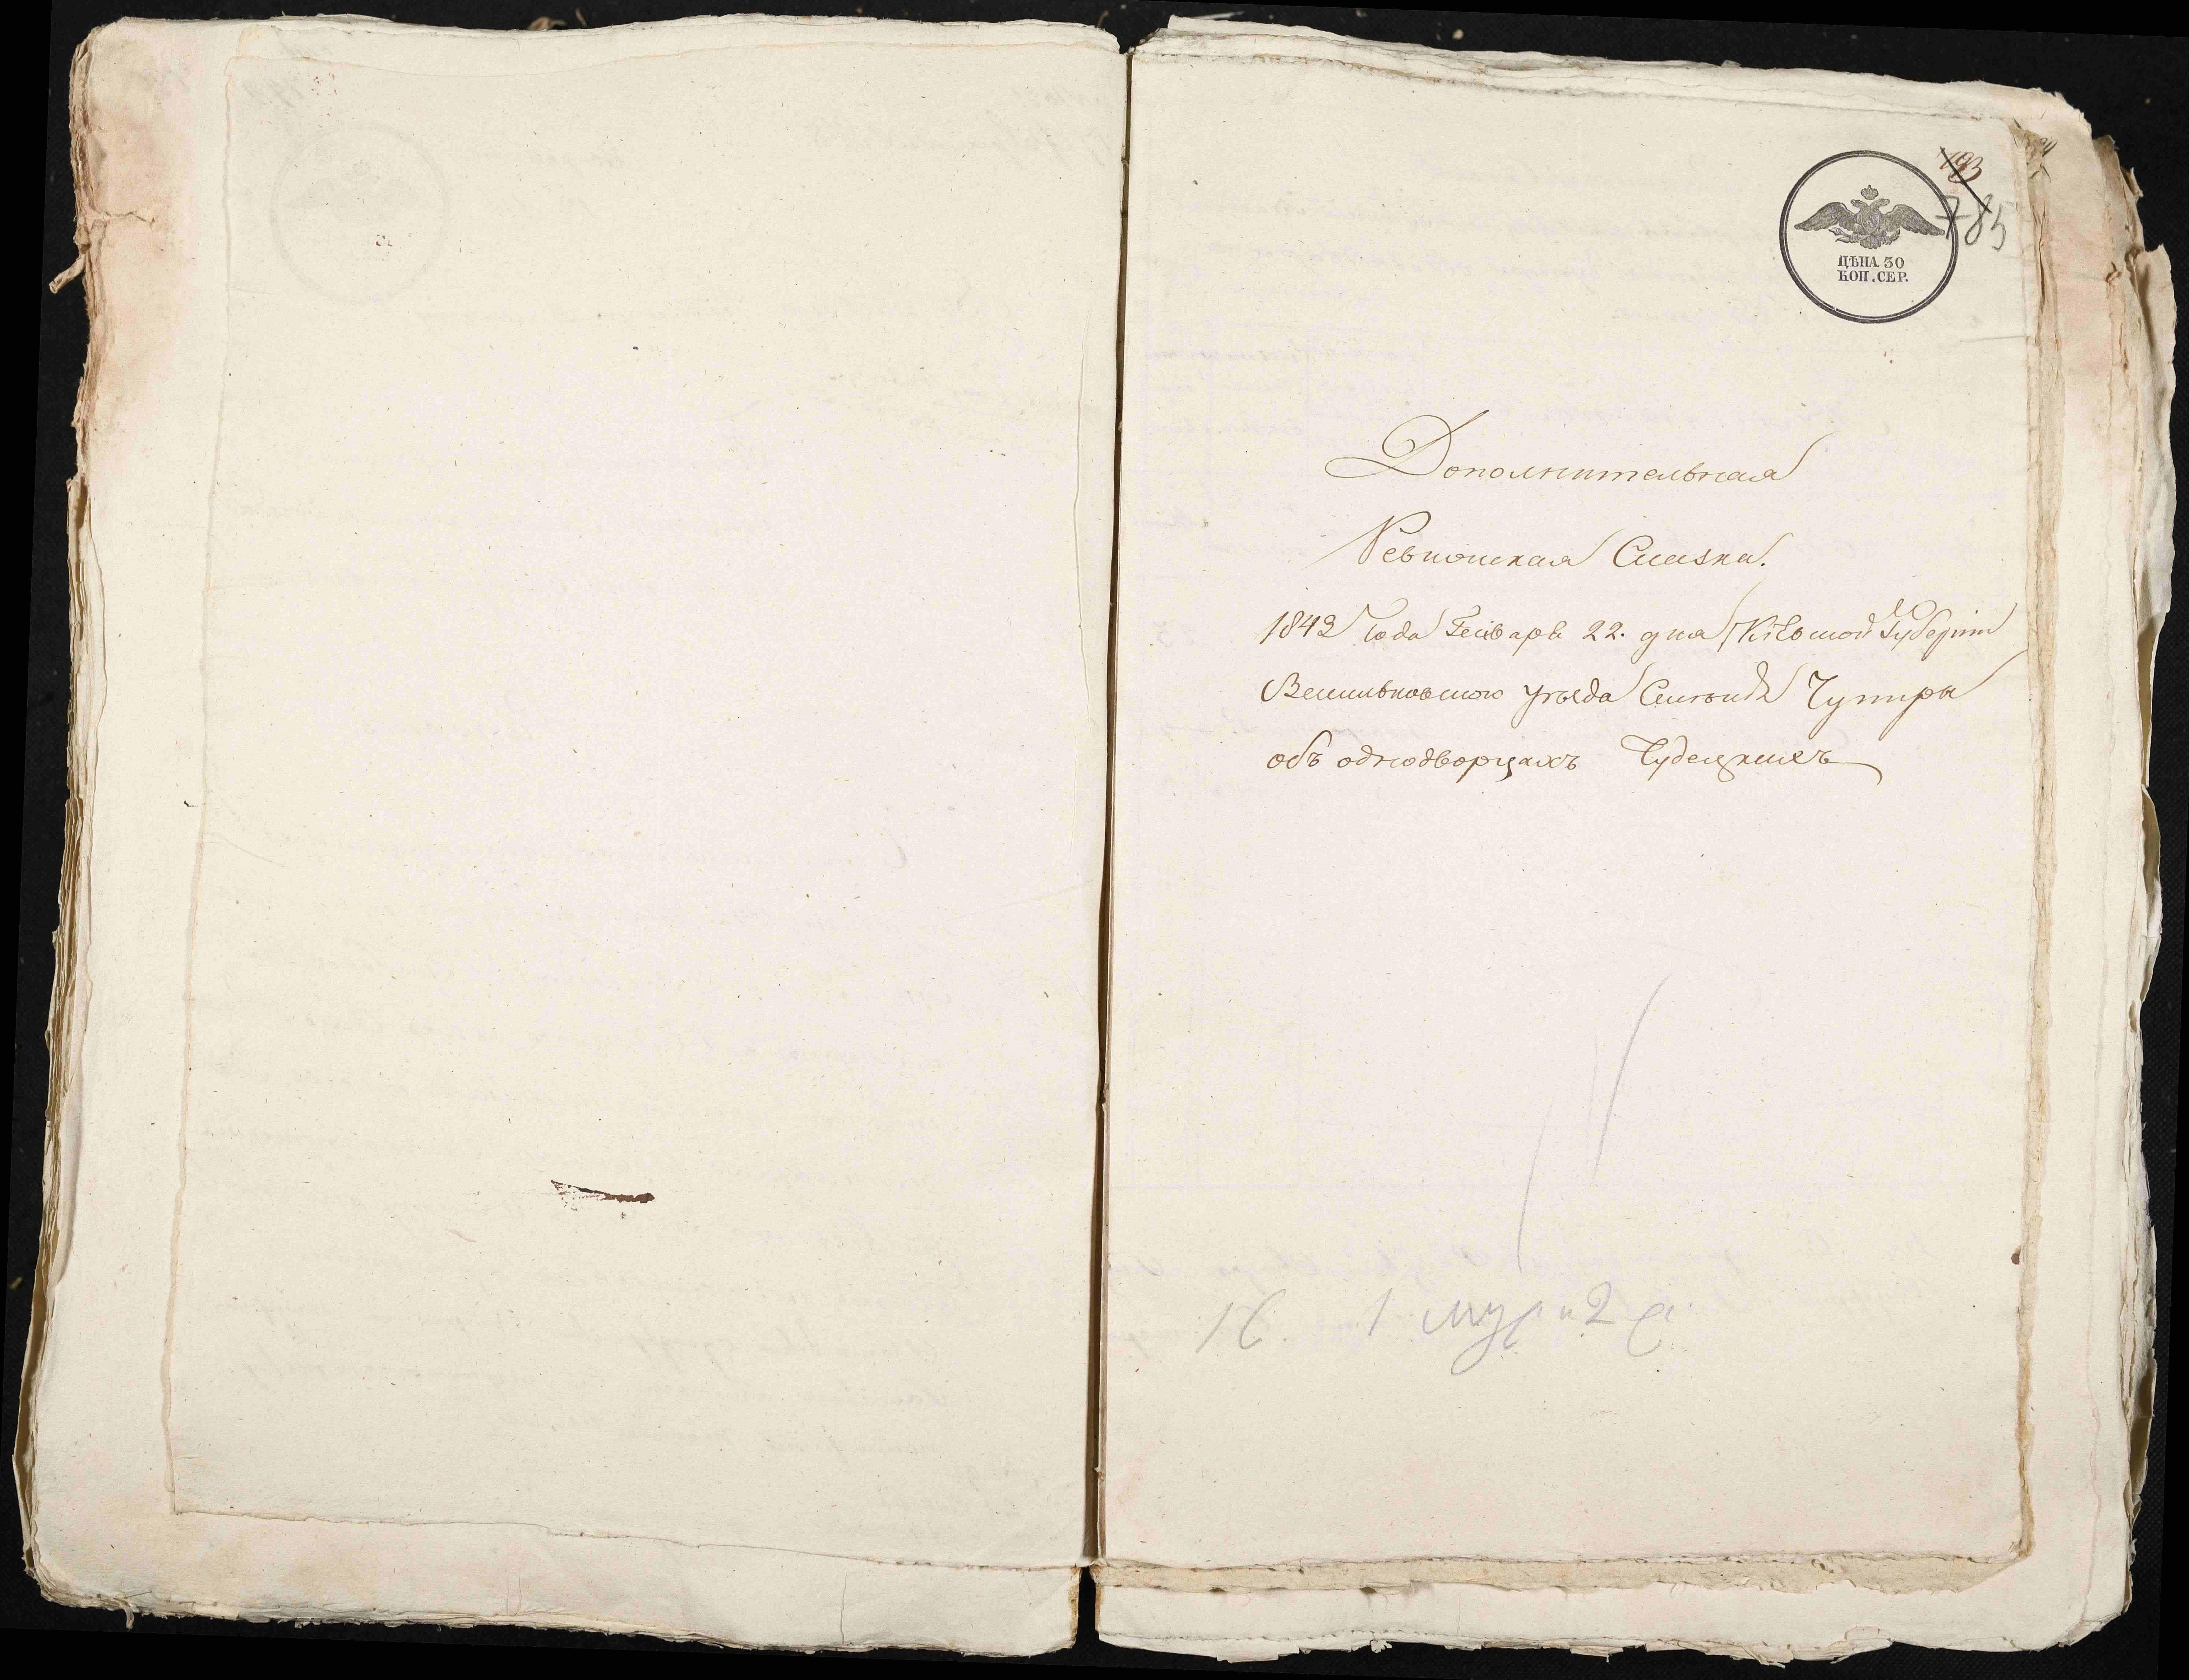 193
785
ЦѢНА 30
КОП. СЕР.
Дополнительная
Ревизская Сказка.
1843 года Генваря 22. дня Кіевской Губерніи
Васильковскаго уѣзда Слободы
объ однодворцахъ Чудецкихъ
16. 1 муж и 2